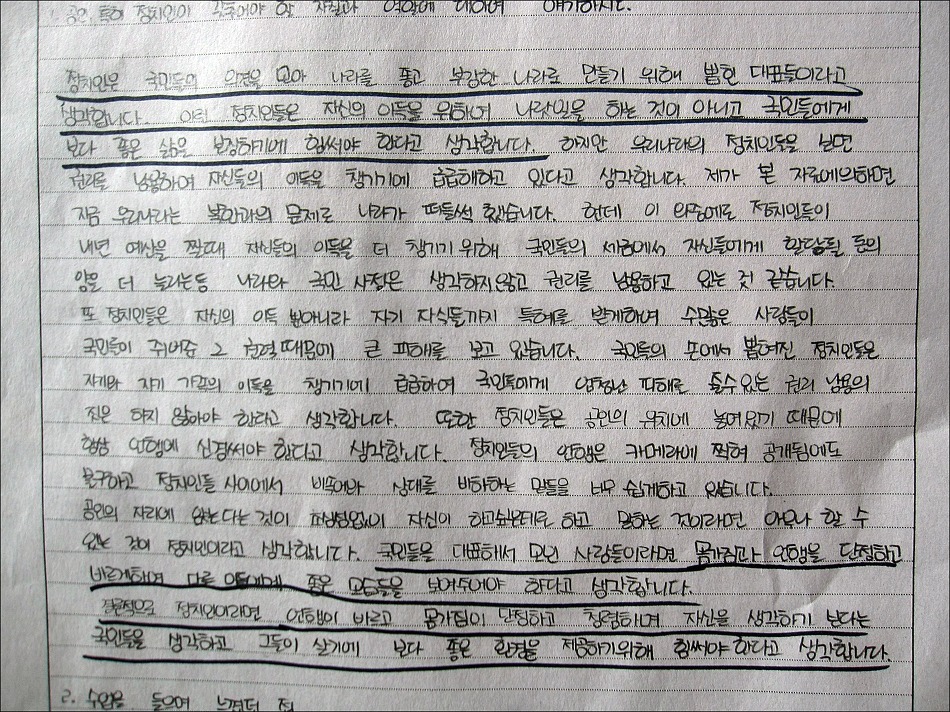 1. 공인, 특히 정치인이 갖추어야 할 자질과 역할에 대하여 얘기하시오.
정치인은 국민들의 의견을 모아 나라를 좋고 부강한 나라로 만들기 위해 뽑힌 대표들이라고
생각합니다. 이런 정치인들은 자신의 이득을 위하여 나랏일을 하는 것이 아니고 국민들에게
보다 좋은 삶을 보장하기에 힘써야 한다고 생각합니다. 하지만 우리나라의 정치인들을 보면
권리를 남용하여 자신들의 이득을 챙기기에 급급해하고 있다고 생각합니다. 제가 본 자료에의하면
지금 우리나라는 북한과의 문제로 나라가 떠들썩 했습니다. 헌데 이 와중에도 정치인들이
내년 예산을 짤때 자신들의 이득을 더 챙기기 위해 국민들의 세금에서 자신들에게 할당될 돈의
양을 더 늘리는등 나라와 국민 사정은 생각하지않고 권리를 남용하고 있는 것 같습니다.
또 정치인들은 자신의 이득 뿐아니라 자기 자식들까지 특혜를 받게하여 수많은 사람들이
국민들이 쥐어준 그 권력때문에 큰 피해를 보고 있습니다. 국민들의 손에서 뽑혀진 정치인들은
자기와 자기 가족의 이득을 챙기기에 급급하여 국민들에게 엄청난 피해를 줄수있는 권리 남용의
짓은 하지 않아야 한다고 생각합니다. 또한 정치인들은 공인의 위치에 놓여있기 때문에
항상 언행에 신경써야 한다고 생각합니다. 정치인들의 언행은 카메라에 찍혀 공개됨에도
불구하고 정치인들 사이에서 비속어와 상대를 비하하는 말들을 너무 쉽게하고 있습니다.
공인의 자리에 앉는다는 것이 자신이 하고싶은대로 하고 말하는 것이라면 아무나 할 수
있는 것이 정치인이라고 생각합니다. 국민들을 대표해서 모인 사람들이라면 몸가짐과 언행을 단정하고
바르게하여 다른 이들에게 좋은 모습들을 보여주어야 한다고 생각합니다.
결론적으로 정치인이라면 언행이 바르고 몸가짐이 단정하고 청렴하며 자신을 생각하기 보다는
국민들을 생각하고 그들이 살기에 보다 좋은 환경을 제공하기위해 힘써야한다고 생각합니다.
2. 수업을 들으며 느꼈던 점